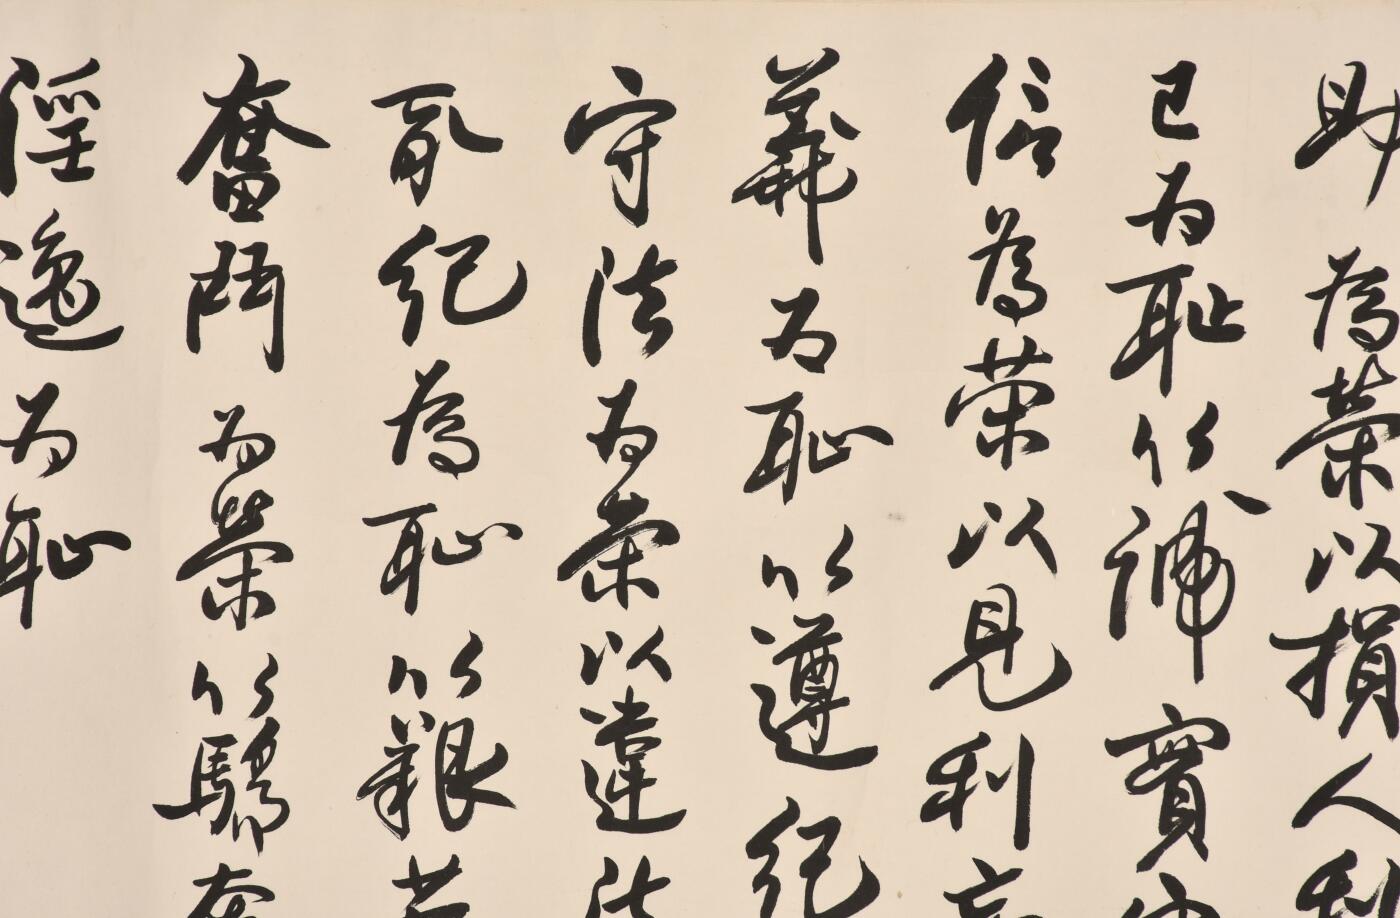 助為榮以損人利
己為恥以誠實守
信為荣以見利忘
義为恥以遵紀
守法为荣以違法
亂紀為恥以艱苦
奮鬥为榮以驕奢
淫逸为恥